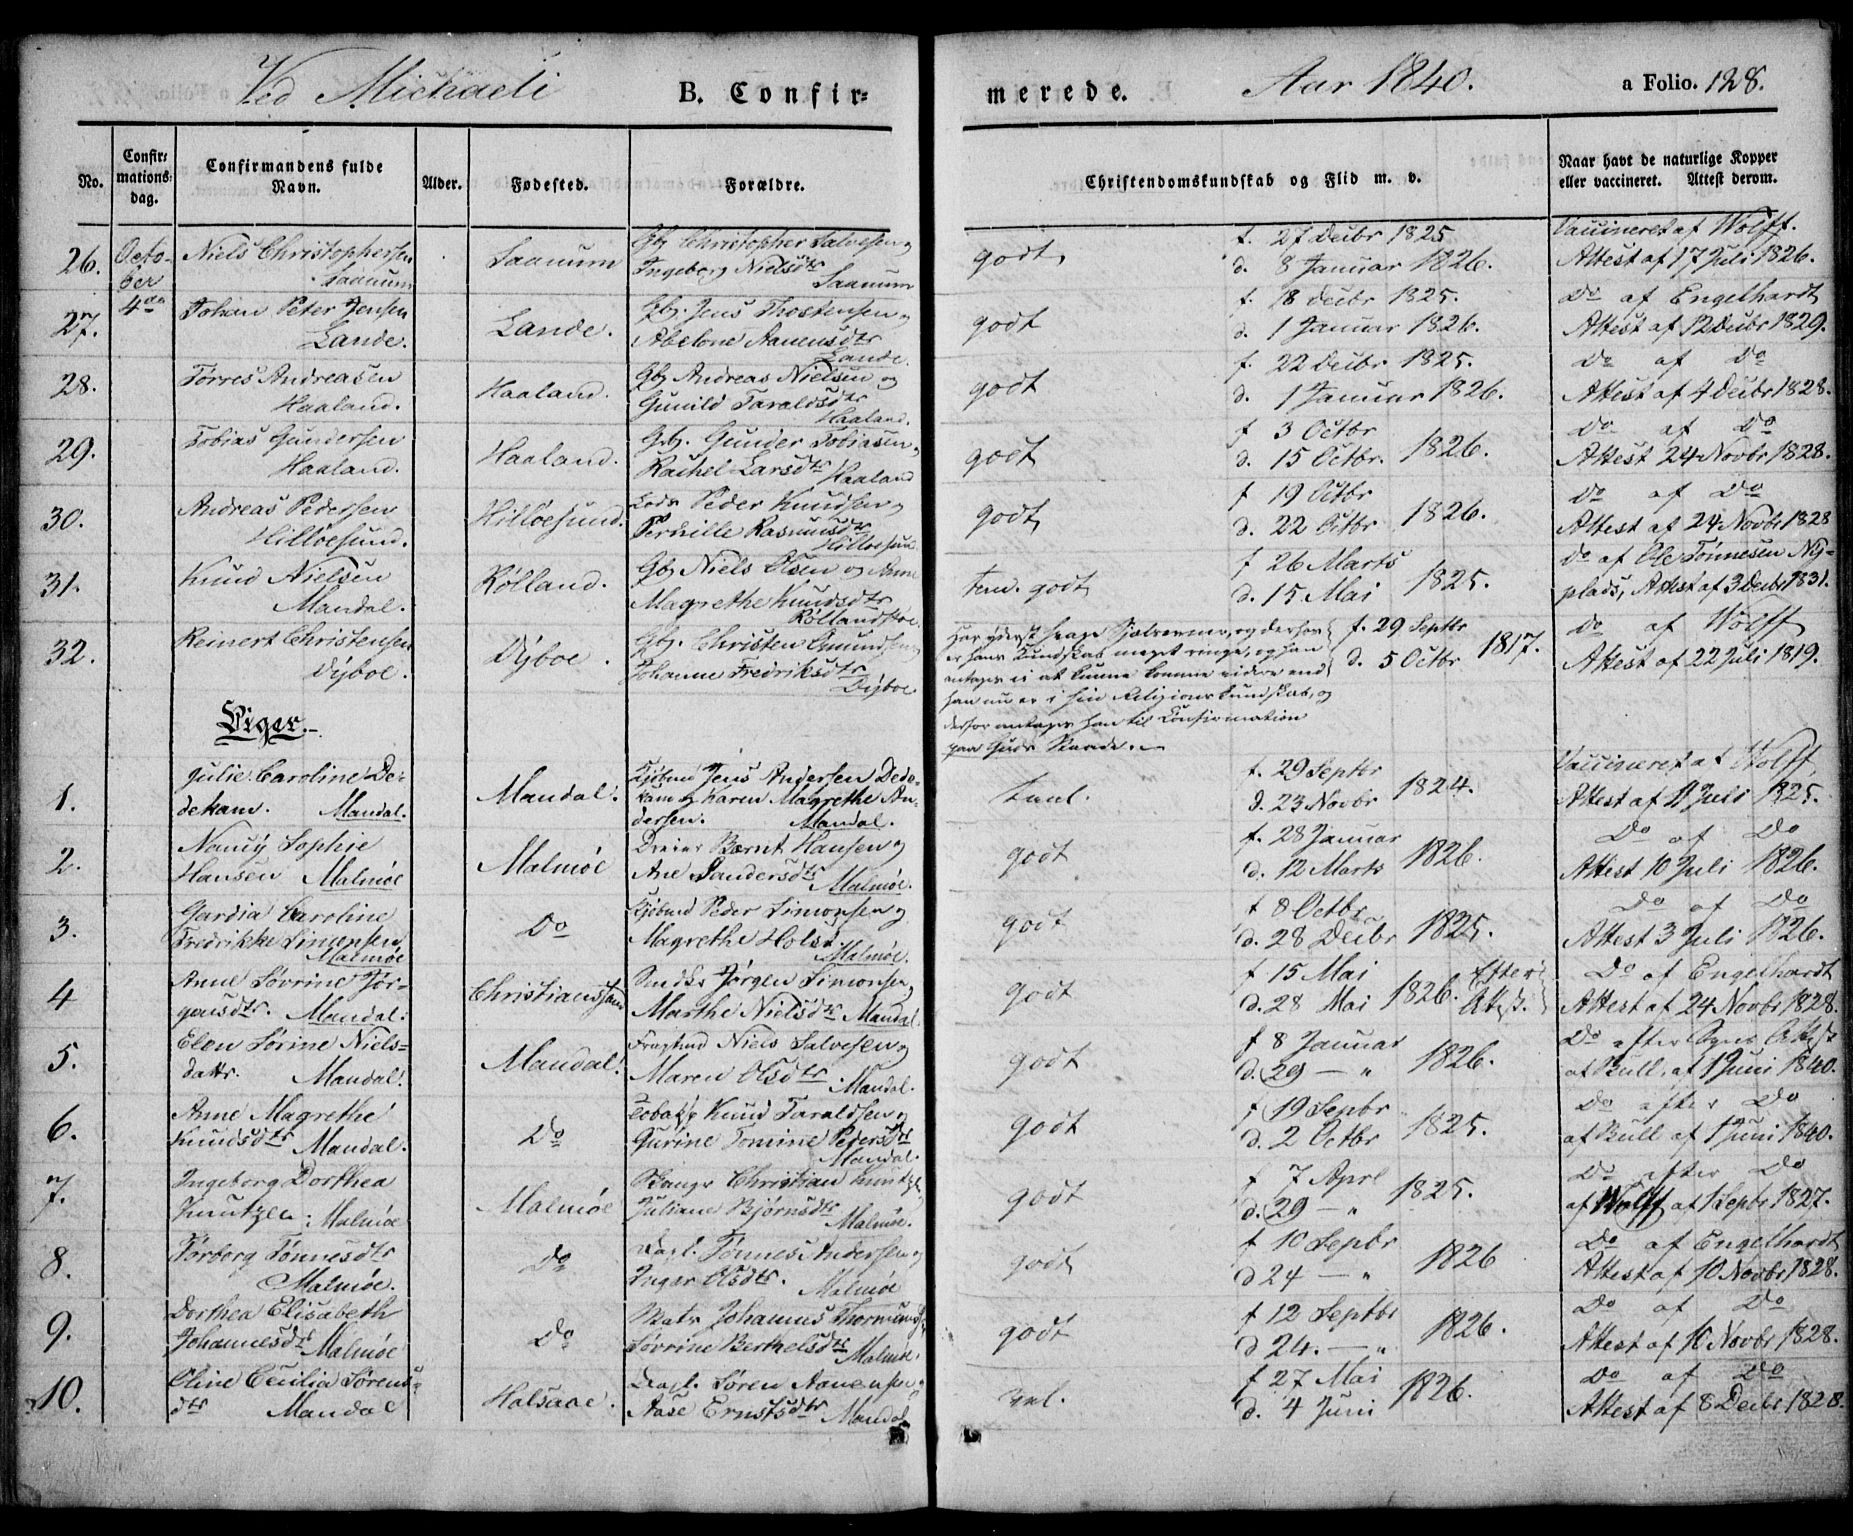 Ved Michaeli B. Confir= merede. Aar 1840. a Folio. 128.
No. Confir= mations= dag. Confirmandens fulde Navn. Alder. Fødested. Forældre. Christendomskundskab og Flid m. v. Naar havt de naturlige Kopper eller vaccineret. Attest derom.
26. Octo- Niels Christophersen Saanum Gb. Christopher Salvesen og godt f. 27 Decbr 1825 Vaccineret af Wolff.
ber Saanum Ingeborg Nielsdtr Saanum d. 8 Januar 1826. Attest af 17 Juli 1826.
27. 4de Johan Peter Jensen Lande. Gb. Jens Thostensen og godt f. 18 Decbr 1825. Do af Engelhardt
Lande. Abelone Aanensdtr Lande. d. 1 Januar 1826. Attest af 12 Decbr 1829.
28. Tørres Andreasen Haaland. Gb Andreas Nielsen og godt f. 22 Decbr 1825. Do af Do
Haaland. Gunild Taraldsdtr Haaland. d. 1 Januar 1826. Attest af 4 Decbr 1828.
29. Tobias Gundersen Haaland. Gb. Gunder Tobiasen godt f 3 Octbr 1826. Do af Do
Haaland. Rachel Larsdtr Haaland d. 15 Octbr. Attest 24 Novbr 1828.
30. Andreas Pedersen Hilløesund. Lods Peder Knudsen og godt f 19 Octbr 1826. Do af Do
Hilløesund. Pernille Rasmusdtr Hilløesund d. 22 Octbr Attest af 24 Novbr 1828
31. Knud Nielsen Rølland. Gb Niels Olsen og Anne Tem. godt f 26 Marts 1825. Do af Ole Tønnesen Ny-
Mandal. Magrethe Knudsdtr d. 15 Mai plads, Attest af 3 Decbr 1831.
32. Reinert Christensen Dÿboe. Gb. Christen Gmundsen Har yderst svage Sjælsevner, og derfor f. 29 Septbr 1817. Do af Wolff
Dÿboe. Johanne Fredriksdtr Dÿboe er hans Kundskab meget ringe, og han d. 5 Octbr Attest af 22 Juli 1819.
antages ei at kunne komme videre end
han nu er i sin Religionskundskab, og
derfor antages han til Confirmation
paa Guds Naade.
Piger.
1. Julie Caroline De- Mandal. Kjøbmd Jens Andersen Dede- f. 29 Septbr 1824. Vaccineret af Wolff
dekam. Mandal. kam og Karen Magrethe An- d. 23 Novbr Attest af 11 Juli 1825.
dersen. Mandal.
2. Nancÿ Sophie Malmøe Dreier Bernt Hansen og godt f. 28 Januar 1826. Do af Do
Hansen Malmøe Ane Sandersdtr Malmøe. d. 12 Marts Attest 10 Juli 1826.
3. Gardia Caroline Do Kjøbmd Peder Simonsen og godt f 8 Octbr 1825. Do af Do
Fredrikke Simonsen Malmøe Magrethe Holst. Malmøe. d. 28 Decbr Attest 3 Juli 1826.
4 Anne Søvrine Jør- Christianssand Snedkr Jørgen Simonsen godt f 15 Mai 1826. Efter Attest. Do af Engelhardt
gensdtr. Mandal. Marthe Nielsdtr Mandal. d. 28 Mai Attest af 24 Novbr 1828.
5. Elen Sørine Niels- Mandal. Niels Salvesen og godt f 8 Januar 1826. Do efter Attest
datr. Mandal. Maren Olsdtr Mandal. d. 29 — " af Bull, af 1 Juni 1840.
6. Anne Magrethe Do Knud Taraldsen og godt f 19 Sepbr 1825. Do efter Do
Knudsdtr Mandal. Gurine Tomine Pedersdtr Mandal. d. 2 Octbr af Bull af 1 Juni 1840.
7. Ingeborg Dorthea Malmøe Christian Knutzen godt f 7 Aprl 1825. Do efter Do
Knutzen. Malmøe Juliane Bjørnsdtr Malmøe. d. 29 — " af Wolff af 1 Sepbr 1827.
8. Torborg Tønnesdtr Do Dagl. Tønnes Andersen og godt f 10 Sepbr 1826 Do af Engelhardt
Malmøe. Inger Olsdtr. Malmøe d 24 — " Attest af 10 Novbr 1828.
9. Dorthea Elisabeth Do Matr Johannes Thormundsen godt f 12 Septbr 1826. Do af Do
Johannesdtr Malmøe Søvrine Berthelsdtr Malmøe. d 24. — " Attest af 10 Novbr 1828.
10. Oline Cecilia Sørens- Halsaae. Dagl. Søren Aanensen vel. f 27 Mai 1826. Do af Do
dtr Mandal Aase Ernstsdtr Mandal d. 4 Juni Attest af 8 Decbr 1828.